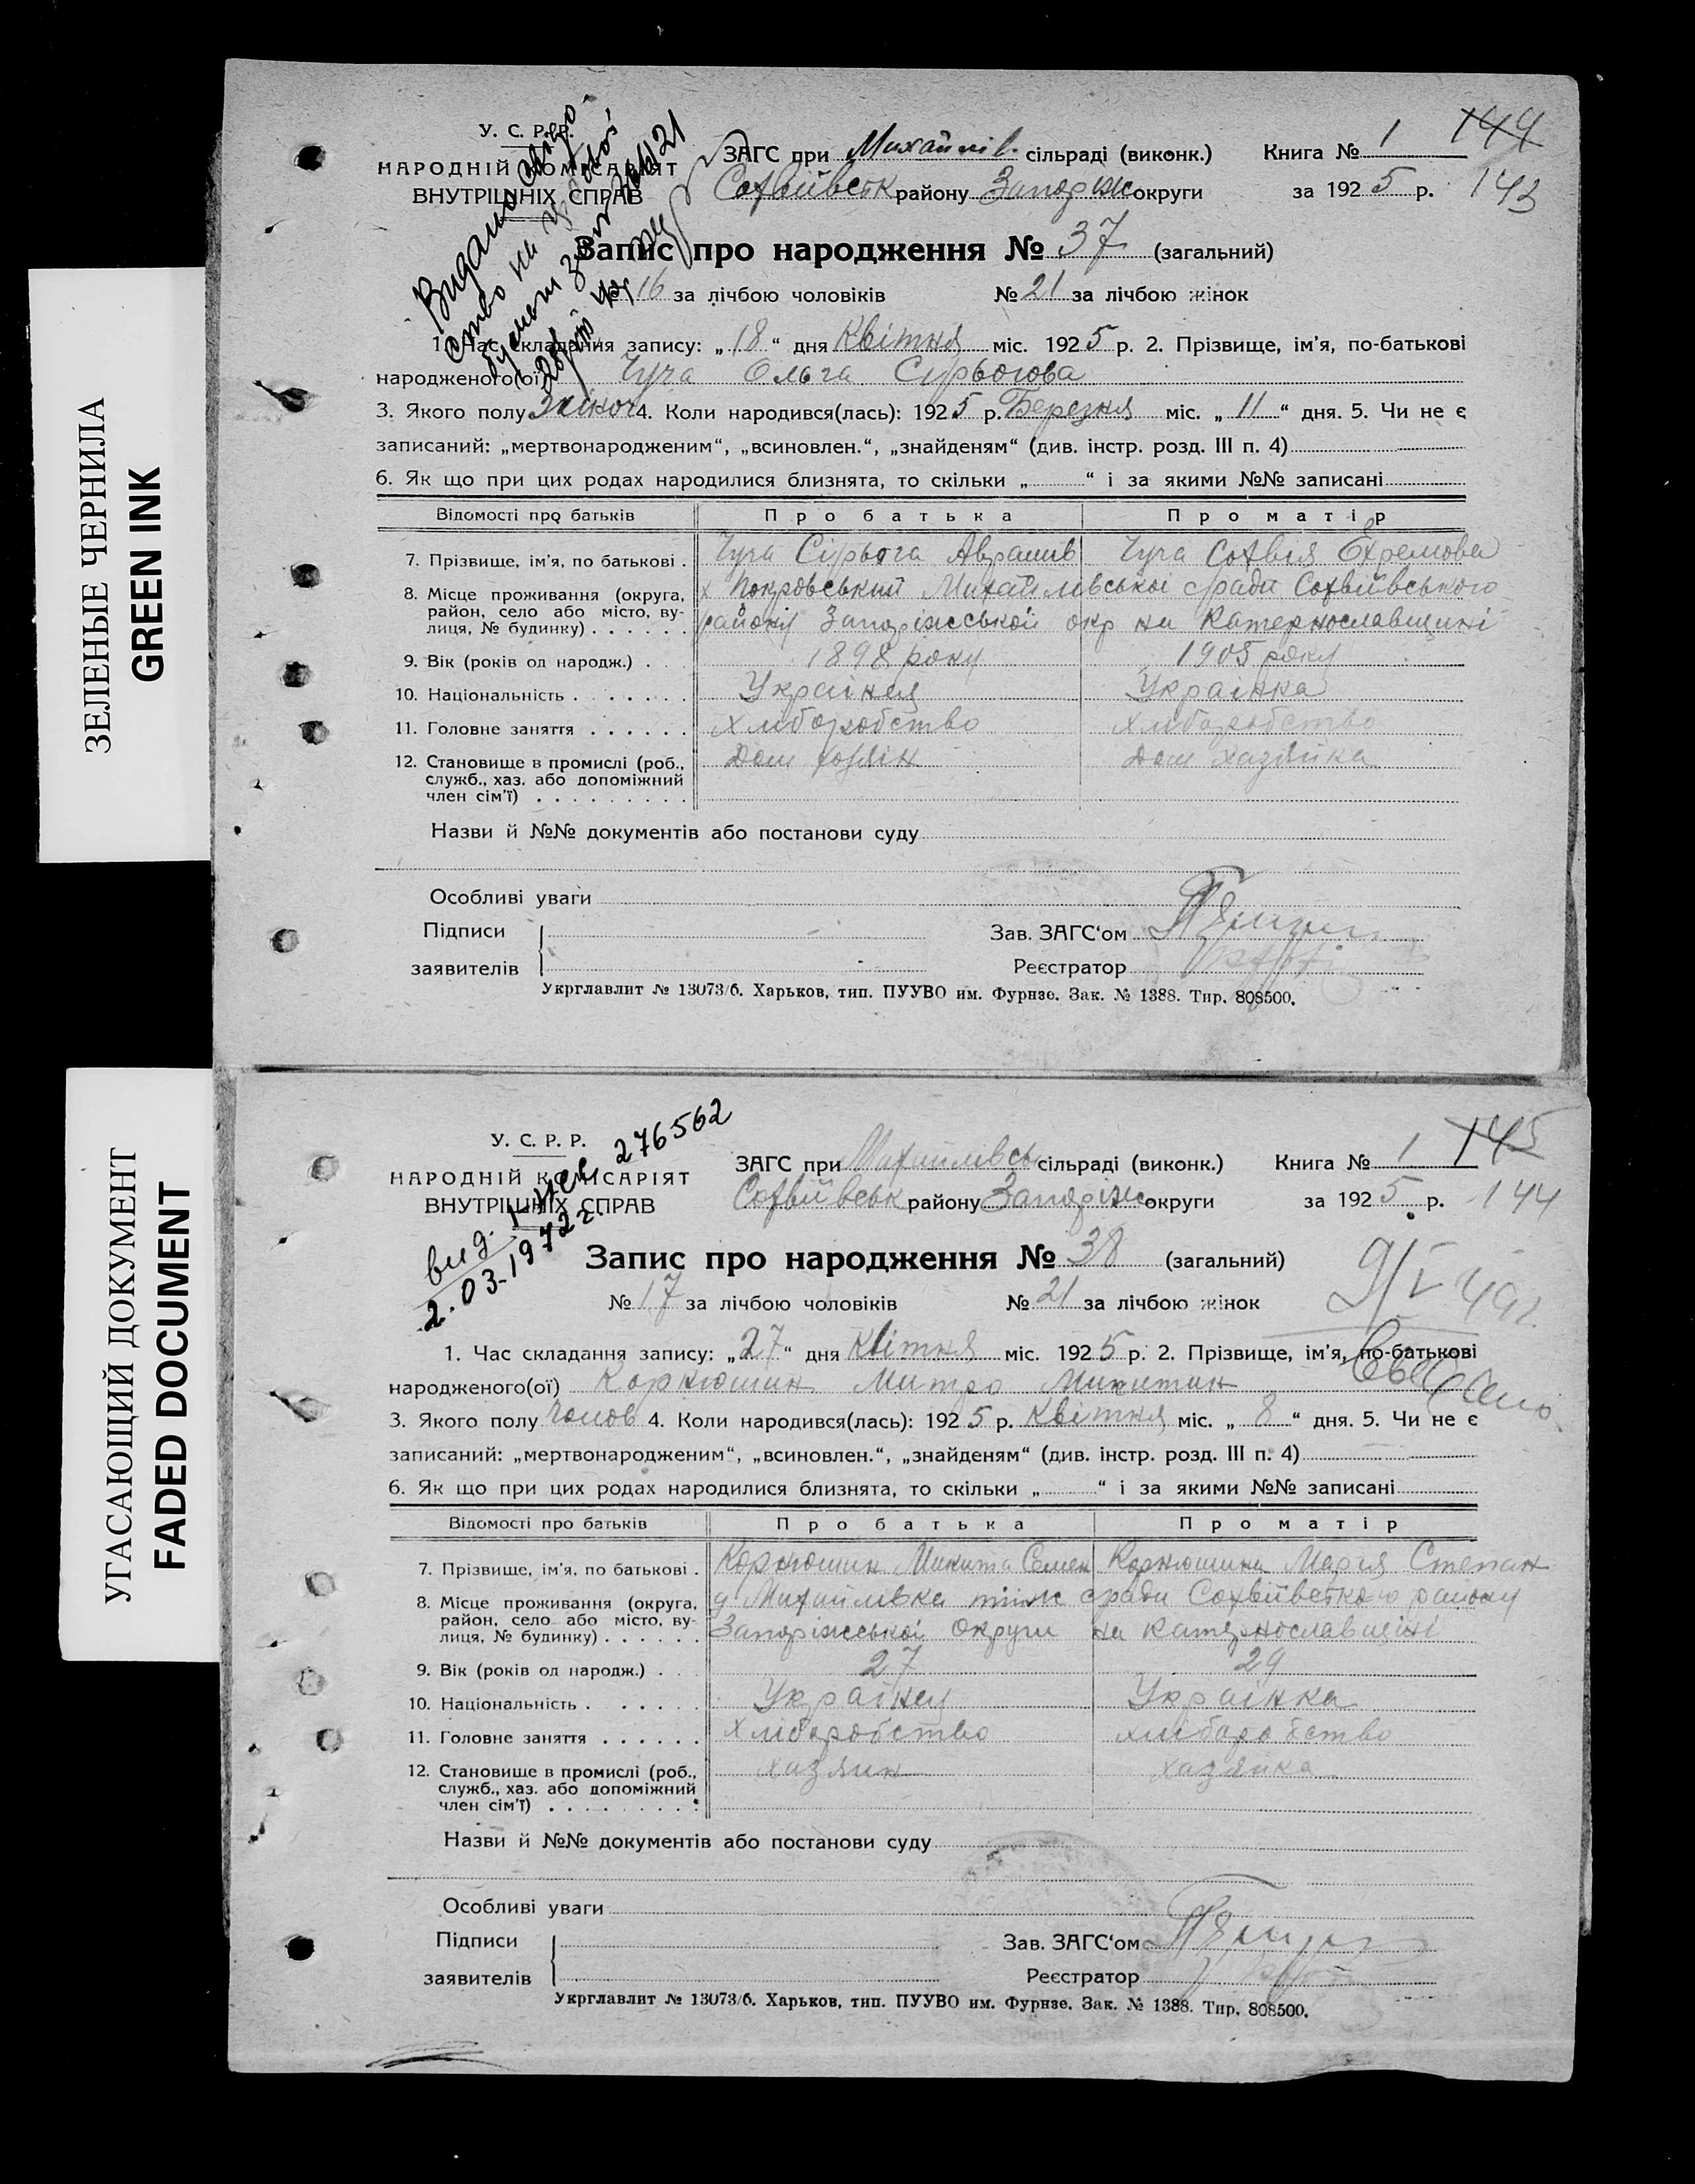 ЗЕЛЕНЫЕ ЧЕРНИЛА
GREEN INK
У. С. Р. Р.
НАРОДНІЙ КОМІСАРІЯТ
ВНУТРІШНІХ СПРАВ
ЗАГС при Михайлів. сільраді (виконк.) Книга № 1 144
Софвійвськ району Запоріж округи за 1925 р. 143
Запис про народження № 37 (загальний)
№ 16 за лічбою чоловіків № 21 за лічбою жінок
1. Час складання запису: „18“ дня Квітня міс. 1925 р. 2. Прізвище, ім’я, по-батькові
народженого(ої) Чуча Ольга Сірьогова
3. Якого полу Жіноч 4. Коли народився(лась): 1925 р. Березня міс. „11“ дня. 5. Чи не є
записаний: „мертвонародженим“, „всиновлен.“, „знайденям“ (див. інстр. розд. III п. 4)
6. Як що при цих родах народилися близнята, то скільки „ “ і за якими №№ записані
Відомості про батьків Про батька Про матір
7. Прізвище, ім’я, по батькові . Чуча Сірьога Аврамів Чуча Софвія Єхремова
8. Місце проживання (округа, х Покровський Михайлівської сради Софвіївського
район, село або місто, ву-
лиця, № будинку) . . . . . . району Запоріжської окр на Катернославщині
9. Вік (років од народж.) . . 1898 року 1905 року
10. Національність . . . . . . Украінец Украінка
11. Головне заняття . . . . . . хліборобство хліборобство
12. Становище в промислі (роб., Дом хозяін Дом хазяйка
служб., хаз. або допоміжний
член сім’ї) . . . . . . . . .
Назви й №№ документів або постанови суду
Особливі уваги
Підписи Зав. ЗАГС‘ом
заявителів Реєстратор
Укрглавлит № 13073/б. Харьков, тип. ПУУВО им. Фурнзе. Зак. № 1388. Тир. 808500.
УГАСАЮЩИЙ ДОКУМЕНТ
FADED DOCUMENT
276562
вид.
2.03.1972 г.
У. С. Р. Р.
НАРОДНІЙ КОМІСАРІЯТ
ВНУТРІШНІХ СПРАВ
ЗАГС при Михайлівсь сільраді (виконк.) Книга № 1 145
Софвіївськ району Запоріж округи за 1925 р. 144
Запис про народження № 38 (загальний)
№ 17 за лічбою чоловіків № 21 за лічбою жінок
9/V 49г.
1. Час складання запису: „27“ дня Квітня міс. 1925 р. 2. Прізвище, ім’я, по-батькові
народженого(ої) Корнюшин Митро Микитин
3. Якого полу чолов 4. Коли народився(лась): 1925 р. Квітня міс. „8“ дня. 5. Чи не є
записаний: „мертвонародженим“, „всиновлен.“, „знайденям“ (див. інстр. розд. III п. 4)
6. Як що при цих родах народилися близнята, то скільки „ “ і за якими №№ записані
Відомості про батьків Про батька Про матір
7. Прізвище, ім’я, по батькові . Корнюшин Микита Семен Корнюшина Марія Степан
8. Місце проживання (округа, Михайлівка тіїж сради Софвіївського району
район, село або місто, ву-
лиця, № будинку) . . . . . . Запоріжської Округи на Катернославщині
9. Вік (років од народж.) . . 27 29
10. Національність . . . . . . Украінец Украінка
11. Головне заняття . . . . . . хліборобство хліборобство
12. Становище в промислі (роб., хазяин хазяйка
служб., хаз. або допоміжний
член сім’ї) . . . . . . . . .
Назви й №№ документів або постанови суду
Особливі уваги
Підписи Зав. ЗАГС‘ом
заявителів Реєстратор
Укрглавлит № 13073/б. Харьков, тип. ПУУВО им. Фурнзе. Зак. № 1388. Тир. 808500.